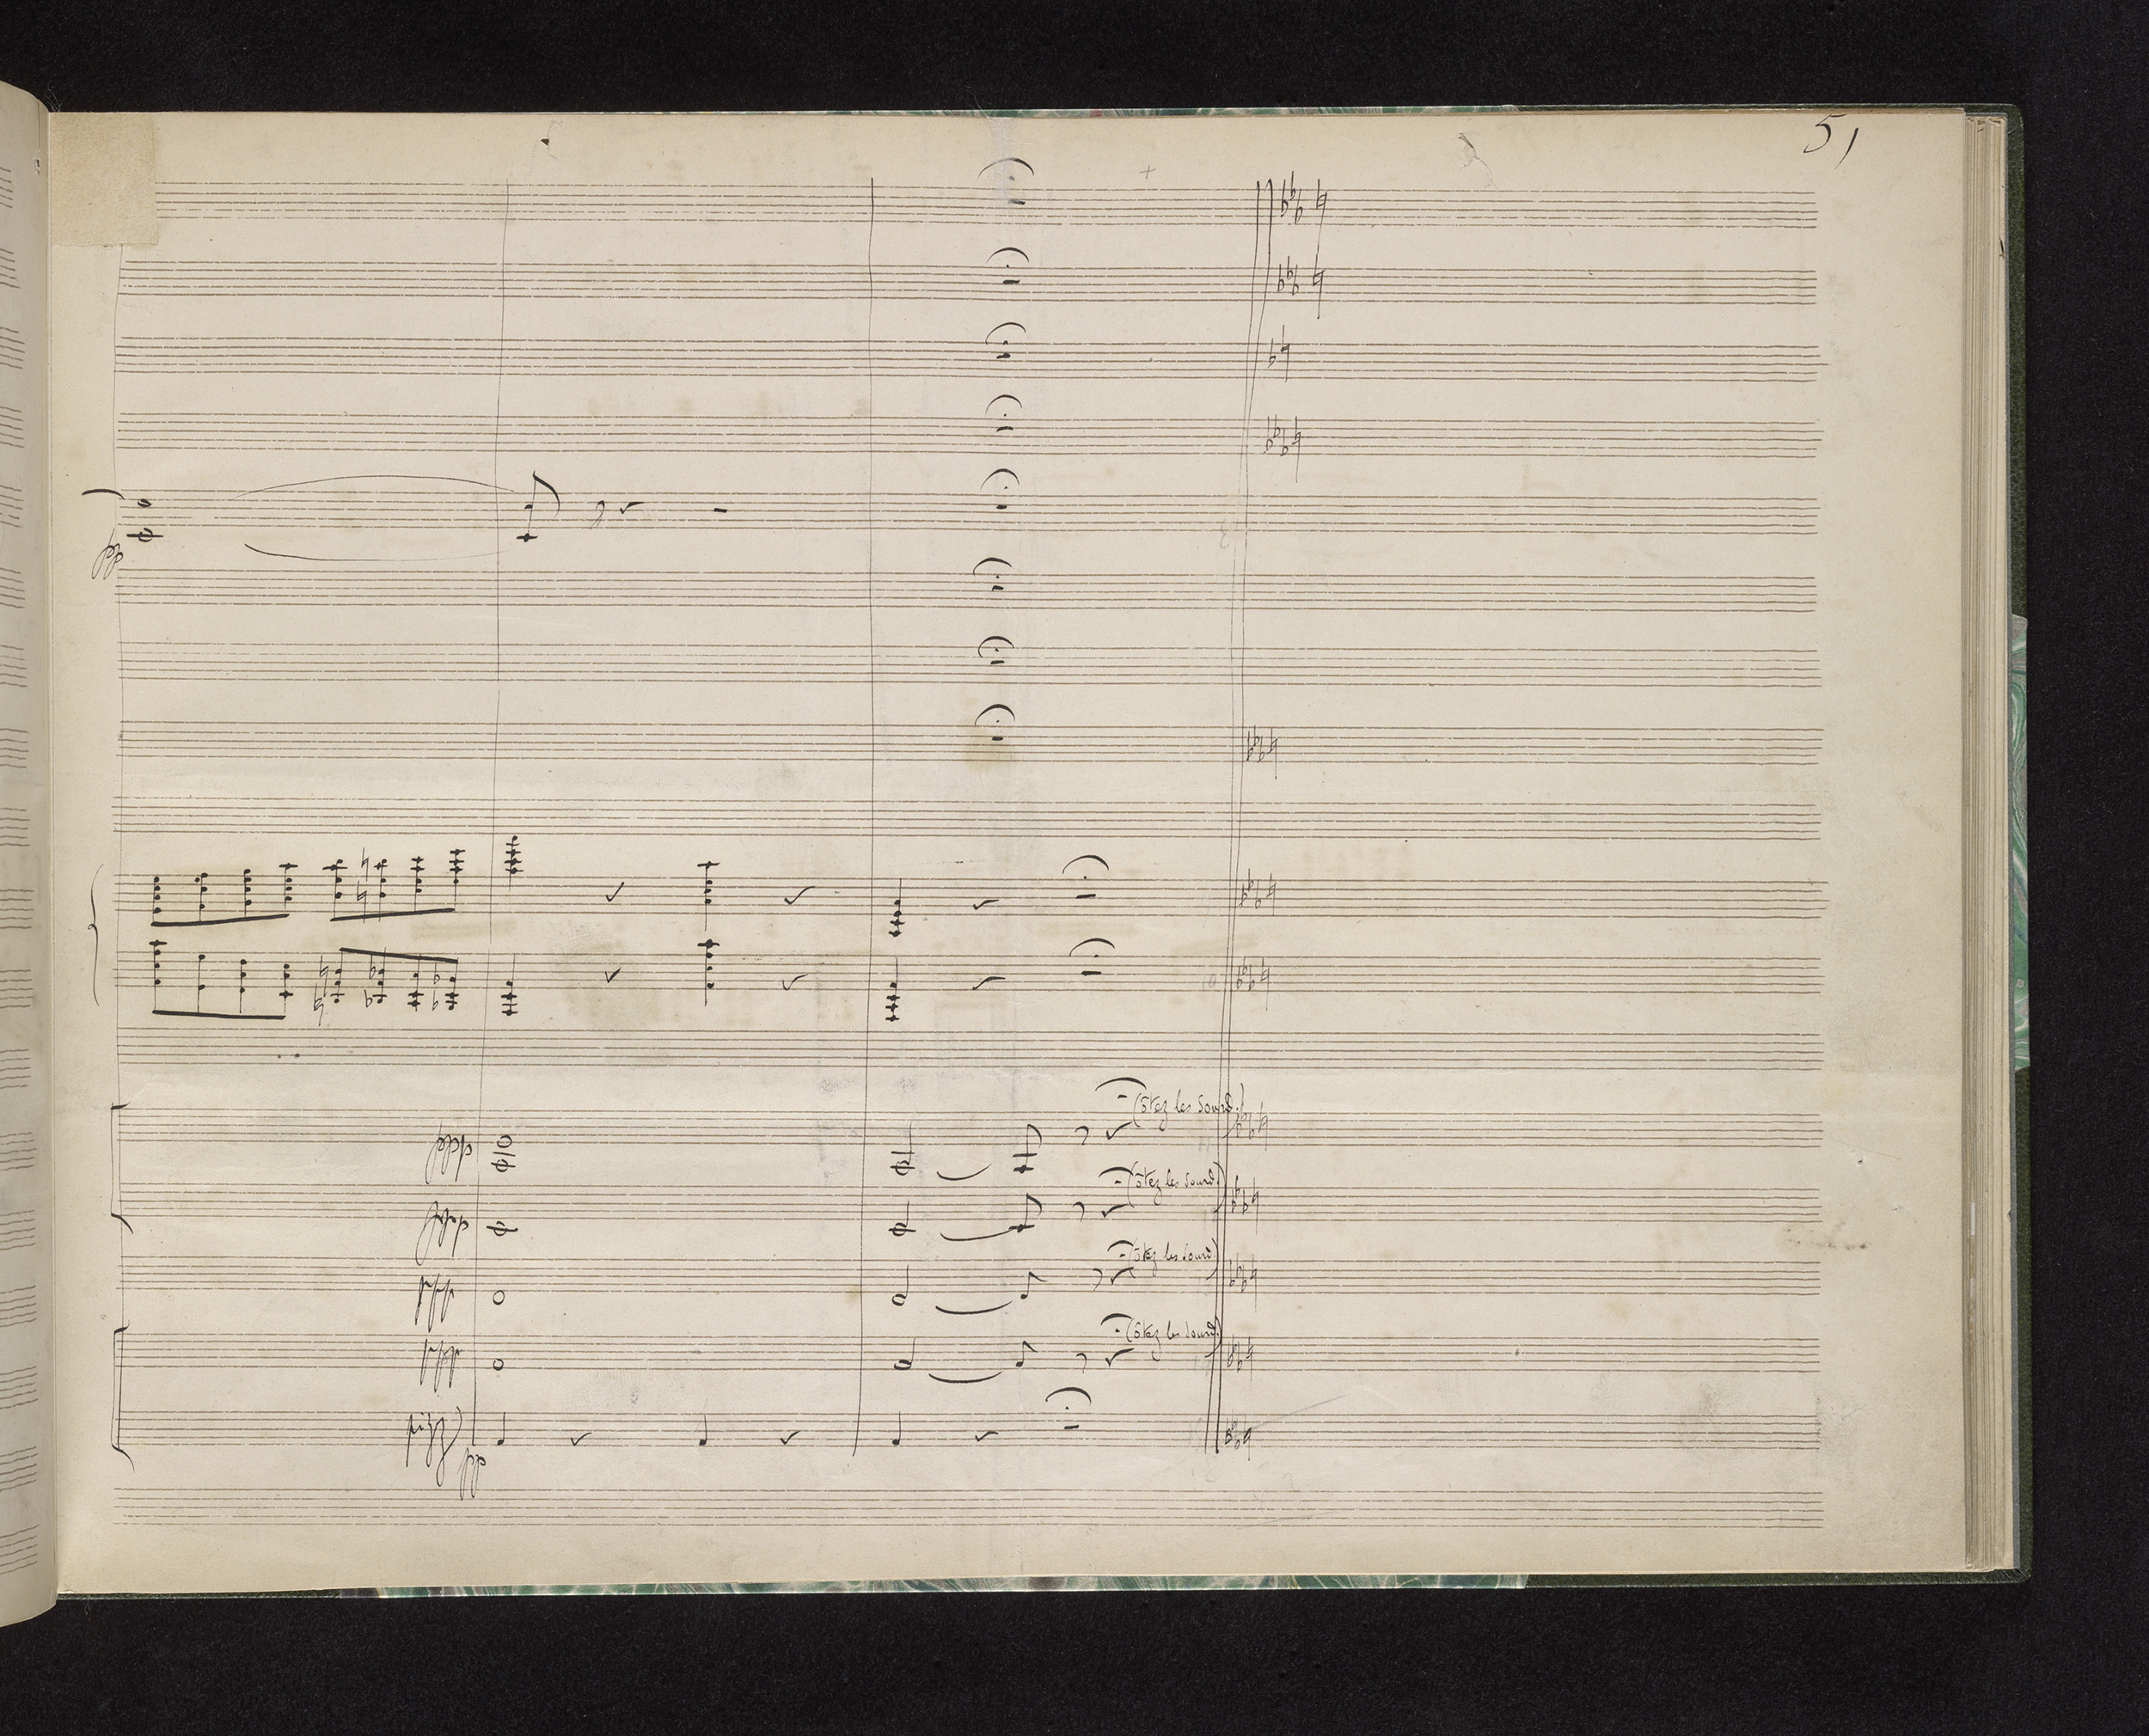 51
pp
ppp
(ôtez les Sourd.)
ppp
(ôtez les sourd.)
ppp
(ôtez les sourd.)
ppp
(ôtez les sourd.)
pizz)
pp